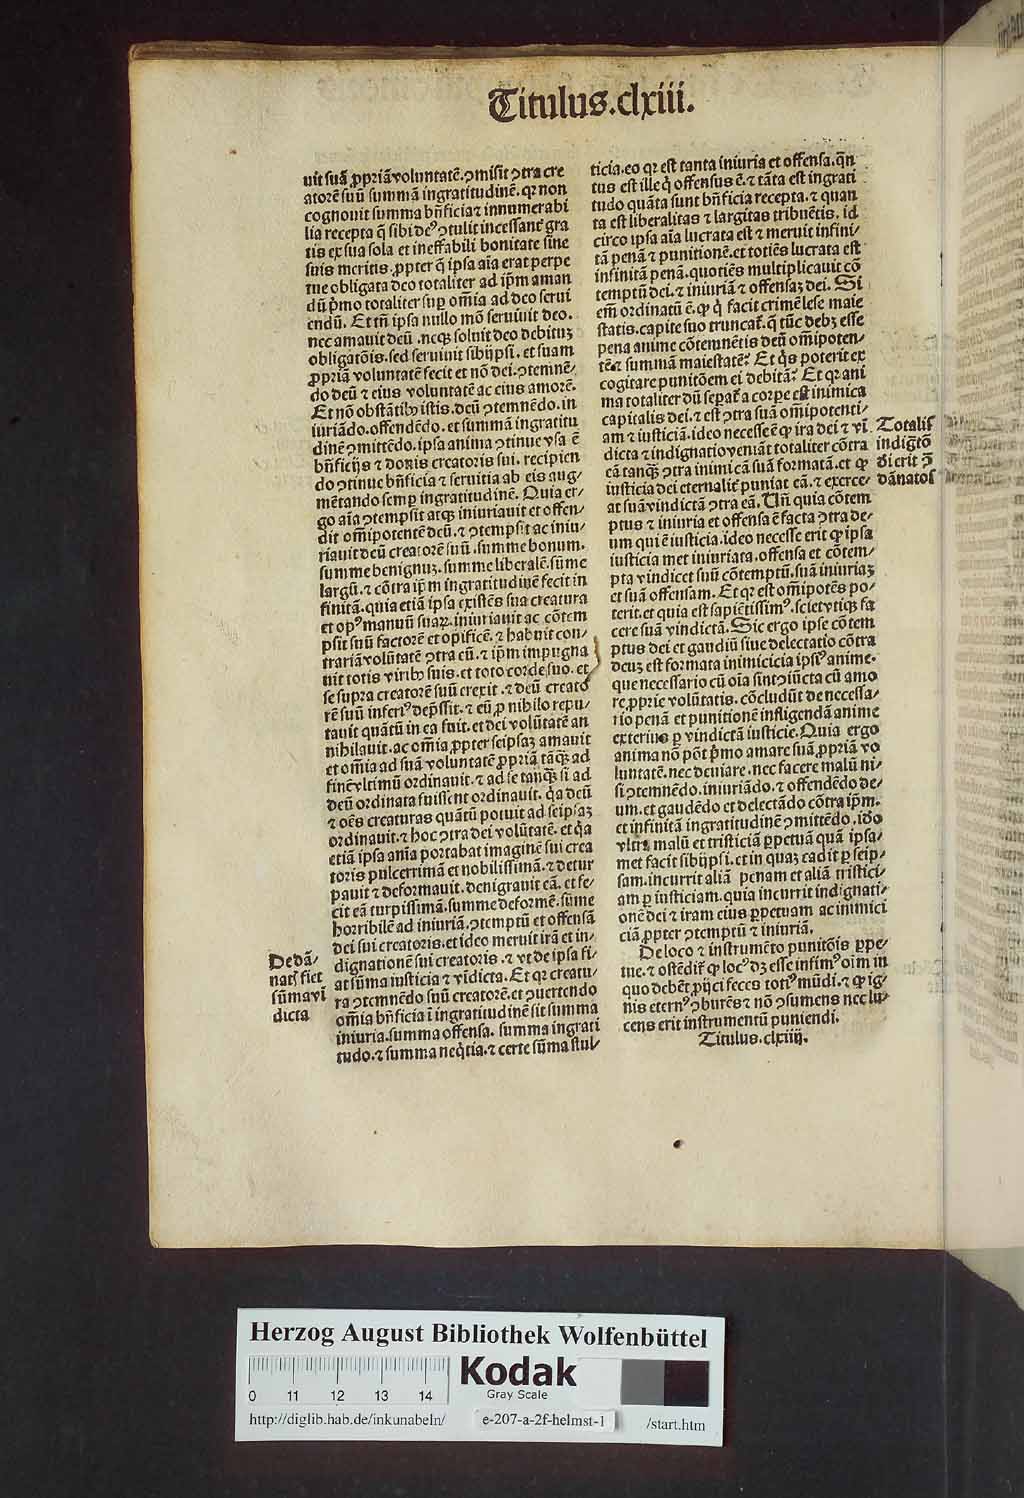 Titulus.clxiii.
uit suā ꝓpriā voluntatē.ꝯmisit ꝯtra cre
atorē suū summā ingratitudinē.qꝛ non
cognouit summa bn̄ficia ⁊ innumerabi
lia recepta q̄ sibi deꝰ ꝯtulit incessant̉ gra
tis ex sua sola et ineffabili bonitate sine
suis meritis.ꝓpter q̄ ipsa aīa erat perpe
tue obligata deo totaliter ad ip̄m aman
dū p̄mo totaliter sup om̄ia ad deo serui
endū. Et tn̄ ipsa nullo mō seruiuit deo.
nec amauit deū .neqꝫ soluit deo debituꝫ
obligatōis.sed seruiuit sibijpsi. et suam
ꝓpriā voluntatē fecit et nō dei.ꝯtemnē/
do deū ⁊ eius voluntatē ac eius amorē.
Et nō obstātibꝰ istis.deū ꝯtemnēdo.in
iuriādo.offendēdo.et summā ingratitu
dinē ꝯmittēdo.ipsa anima ꝯtinue vsa ē
bn̄ficijs ⁊ donis creatoris sui. recipien
do ꝯtinue bn̄ficia ⁊ seruitia ab eis aug/
mētando semꝑ ingratitudinē. Quia er/
go aīa ꝯtempsit atqꝫ iniuriauit et offen/
dit om̄ipotentē deū.⁊ ꝯtempsit ac iniu/
riauit deū creatorē suū .summe bonum.
summe benignuꝫ.summe liberalē.sūme
largū.⁊ cōtra ip̄m ingratitudinē fecit in
finitā.quia etiā ipsa existēs sua creatura
et opꝰ manuū suaꝝ.iniuriauit ac cōtem
psit suū factorē et opificē.⁊ habuit con/
trariā volūtatē ꝯtra eū.⁊ ip̄m impugna
uit totis viribꝰ suis.et toto corde suo.et
se supra creatorē suū erexit .⁊ deū creato
rē suū inferiꝰ dep̄ssit.⁊ eū ꝓ nihilo repu/
tauit quātū in ea fuit.et dei volūtatē an
nihilauit.ac om̄ia ꝓpter seipsaꝫ amauit
et om̄ia ad suā voluntatē ꝓpriā tāqꝫ ad
finē vltimū ordinauit.⁊ ad se tanqꝫ si ad
deū ordinata fuissent ordinauit. q̄a deū
⁊ oēs creaturas quātū potuit ad seipsaꝫ
ordinauit.⁊ hoc ꝯtra dei volūtatē.et q̄a
etiā ipsa aīma portabat imaginē sui crea
toris pulcerrimā et nobilissimā.⁊ detur
pauit ⁊ deformauit.denigrauit eā.et fe/
cit eā turpissimā.summe deformē.sūme
horribilē ad iniuriā.ꝯtemptū et offensā
dei sui creatoris.et ideo meruit irā et in/
dignationē sui creatoris .⁊ vt de ipsa fi/
at sūma iusticia ⁊ vīdicta. Et qꝛ creatu/
ra ꝯtemnēdo suū creatorē.et ꝯuertendo
om̄ia bn̄ficia ī ingratitudinē sit summa
iniuria.summa offensa. summa ingrati
tudo.⁊ summa neq̄tia.⁊ certe sūma stul/
De dā/
natꝭ fiet
sūma vī
dicta
ticia.eo qꝛ est tanta iniuria et offensa.q̄n
tus est ille q̇ offensus ē.⁊ tāta est ingrati
tudo quāta sunt bn̄ficia recepta.⁊ quan
ta est liberalitas ⁊ largitas tribuētis. id
circo ipsa aīa lucrata est ⁊ meruit infini/
tā penā ⁊ punitionē.et totiēs lucrata est
infinitā penā.quotiēs multiplicauit cō
temptū dei.⁊ iniuriā ⁊ offensaꝫ dei. Si
em̄ ordinatū ē.ꝙ q̇ facit crimē lese maie
statis.capite suo truncat̉.q̄ tūc debꝫ esse
pena anime cōtemnētis deū om̄ipoten/
tē ⁊ summā maiestatē? Et q̇s poterit ex
cogitare punitōem ei debitā? Et qꝛ ani
ma totaliter dū sepat̉ a corꝑe est inimica
capitalis dei.⁊ est ꝯtra suā om̄ipotenti/
am ⁊ iusticiā.ideo necesse ē ꝙ ira dei ⁊ vī
dicta ⁊ indignatio veniāt totaliter cōtra
eā tanqꝫ ꝯtra inimicā suā formatā.et ꝙ
iusticia dei eternalit̉ puniat eā.⁊ exerce/
at suā vindictā ꝯtra eā. Vn̄ quia cōtem
ptus ⁊ iniuria et offensa ē facta ꝯtra de/
um qui ē iusticia.ideo necesse erit ꝙ ipsa
iusticia met iniuriata.offensa et cōtem/
pta vindicet suū cōtemptū.suā iniuriaꝫ
et suā offensam. Et qꝛ est om̄ipotēs po/
terit.et quia est sapiētissimꝰ.sciet vtiqꝫ fa
cere suā vindictā. Sic ergo ipse cōtem
ptus dei et gaudiū siue delectatio cōtra
deuꝫ est formata inimicicia ipsiꝰ anime.
que necessario cū oīa sint ꝯiūcta cū amo
re ꝓprie volūtatis. cōcludūt de necessa/
rio penā et punitionē infligendā anime
exterius ꝑ vindictā iusticie. Quia ergo
anima nō pōt p̄mo amare suā ꝓpriā vo
luntatē.nec deuiare.nec facere malū ni/
si ꝯtemnēdo.iniuriādo.⁊ offendēdo de/
um.et gaudēdo et delectādo cōtra ip̄m.
et infinitā ingratitudinē ꝯmittēdo.ido
vltra malū et tristiciā ꝑpetuā quā ipsa/
met facit sibijpsi.et in quaꝫ cadit ꝑ seip/
sam.incurrit aliā penam et aliā tristici/
am ꝑ iusticiam.quia incurrit indignati/
onē dei ⁊ iram eius ꝑpetuam ac inimici
ciā ꝓpter ꝯtemptū ⁊ iniuriā.
De loco ⁊ instrumēto punitōis ꝑpe/
tue.⁊ ostēdit̉ ꝙ locꝰ dꝫ esse infimꝰ oīm in
quo debēt ꝓijci feces totiꝰ mūdi.⁊ ꝙ ig/
nis eternꝰ ꝯburēs ⁊ nō ꝯsumens nec lu/
cens erit instrumentū puniendi.
Titulus.clxiiij.
Totalis
indig̃tō
di erit ꝯ̄
dānatos
Herzog August Bibliothek Wolfenbüttel
Kodak
Gray Scale
0 11 12 13 14
http://diglib.hab.de/inkunabeln/ e-207-a-2f-helmst-1 /start.htm